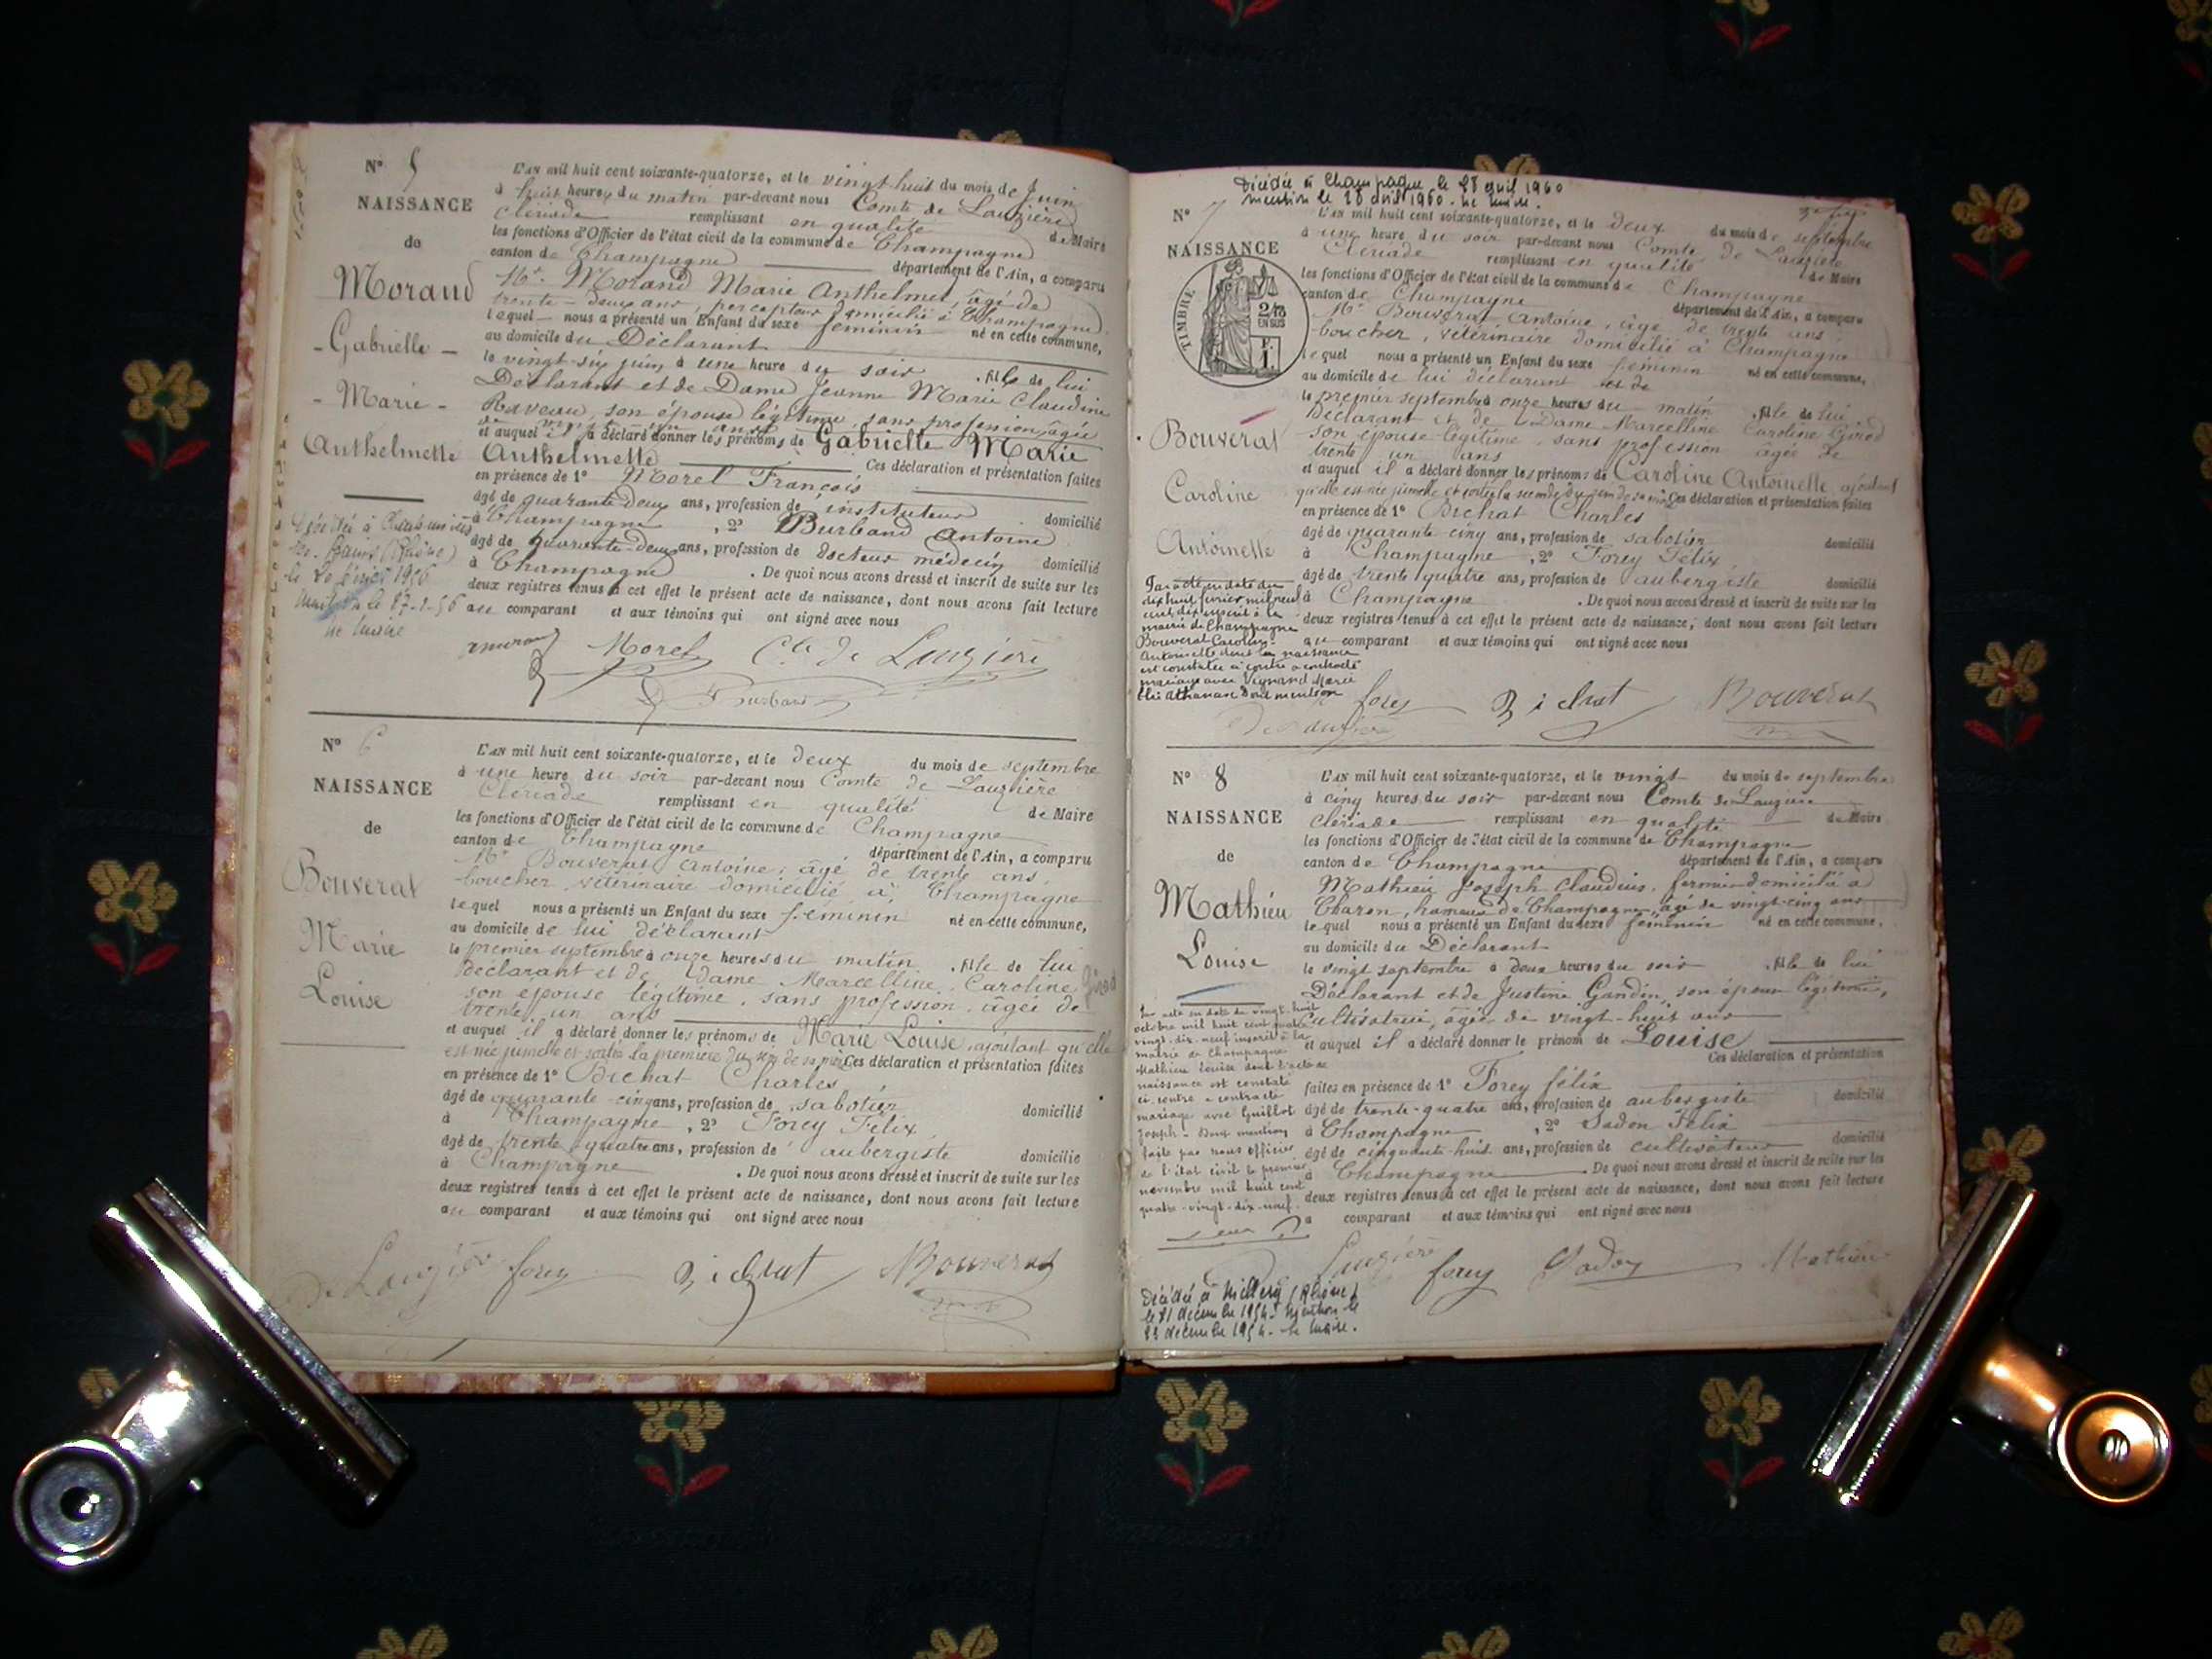 N° 5
NAISSANCE
de
Morand
- Gabrielle -
- Marie -
Anthelmette
Décédée à
les-Bains (Rhône)
le 26 février 1956
le Maire
L'AN mil huit cent soixante-quatorze, et le vingt huit du mois de Juin
à huit heures du matin par-devant nous Comte de Lauzière
Clériade remplissant en qualité de Maire
les fonctions d'Officier de l'état civil de la commune de Champagne
canton de Champagne département de l'Ain, a comparu
Mr. Morand Marie Anthelme, âgé de
trente-deux ans, percepteur domicilié à Champagne
lequel nous a présenté un Enfant du sexe féminin né en cette commune,
au domicile du Déclarant
le vingt-six juin à une heure du soir, fille de lui
Déclarant et de Dame Jeanne Marie Claudine
Raveau, son épouse légitime, sans profession, âgée
de ans
et auquel il a déclaré donner les prénoms de Gabrielle Marie
Anthelmette Ces déclaration et présentation faites
en présence de 1° Morel François
âgé de quarante deux ans, profession de instituteur domicilié
à Champagne, 2° Burband Antoine
âgé de quarante-deux ans, profession de docteur médecin domicilié
à Champagne. De quoi nous avons dressé et inscrit de suite sur les
deux registres tenus à cet effet le présent acte de naissance, dont nous avons fait lecture
au comparant et aux témoins qui ont signé avec nous
Morand Morel Cte de Lauzière
Burband
N° 6
NAISSANCE
de
Bouverat
Marie
Louise
L'AN mil huit cent soixante-quatorze, et le deux du mois de septembre
à une heure du soir par-devant nous Comte de Lauzière
Clériade remplissant en qualité de Maire
les fonctions d'Officier de l'état civil de la commune de Champagne
canton de Champagne département de l'Ain, a comparu
Mr Bouverat Antoine, âgé de trente ans,
boucher, vétérinaire domicilié à Champagne
lequel nous a présenté un Enfant du sexe féminin né en cette commune,
au domicile de lui déclarant
le premier septembre à onze heures du matin, fille de lui
Déclarant et de Dame Marcelline Caroline Girod
son épouse légitime, sans profession, âgée de
trente un ans
et auquel il a déclaré donner les prénoms de Marie Louise, ajoutant qu'elle
est née jumelle et sortie la première du sein de sa mère Ces déclaration et présentation faites
en présence de 1° Bichat Charles
âgé de quarante cinq ans, profession de sabotier domicilié
à Champagne, 2° Forey Félix
âgé de trente quatre ans, profession de aubergiste domicilié
à Champagne. De quoi nous avons dressé et inscrit de suite sur les
deux registres tenus à cet effet le présent acte de naissance, dont nous avons fait lecture
au comparant et aux témoins qui ont signé avec nous
de Lauzière forey Bichat Bouverat
Décédée à Champagne le 28 avril 1960
Mention le 28 avril 1960 - Le Maire.
N° 7
NAISSANCE
TIMBRE
Bouverat
Caroline
Antoinette
Par acte en date du
dix huit février mil neuf
cent dix inscrit à la
mairie de Champagne
Bouverat Caroline
Antoinette dont la naissance
est constatée ci contre a contracté
mariage avec Vignand Marie
Elie Athanase Dont mention
L'AN mil huit cent soixante-quatorze, et le deux du mois de septembre
à une heure du soir par-devant nous Comte de Lauzière
Clériade remplissant en qualité de Maire
les fonctions d'Officier de l'état civil de la commune de Champagne
canton de Champagne département de l'Ain, a comparu
Mr Bouverat Antoine, âgé de trente ans,
boucher, vétérinaire domicilié à Champagne
lequel nous a présenté un Enfant du sexe féminin né en cette commune,
au domicile de lui déclarant et de
le premier septembre à onze heures du matin, fille de lui
Déclarant et de Dame Marcelline Caroline Girod
son épouse légitime, sans profession âgée de
trente un ans
et auquel il a déclaré donner les prénoms de Caroline Antoinette ajoutant
qu'elle est née jumelle et sortie la seconde du sein de sa mère Ces déclaration et présentation faites
en présence de 1° Bichat Charles
âgé de quarante cinq ans, profession de sabotier domicilié
à Champagne, 2° Forey Félix
âgé de trente quatre ans, profession de aubergiste domicilié
à Champagne. De quoi nous avons dressé et inscrit de suite sur les
deux registres tenus à cet effet le présent acte de naissance, dont nous avons fait lecture
au comparant et aux témoins qui ont signé avec nous
de Lauzière forey Bichat Bouverat
N° 8
NAISSANCE
de
Mathieu
Louise
Par acte en date du vingt huit
octobre mil huit cent quatre
vingt-dix-neuf inscrit à la
mairie de Champagne
Mathieu Louise dont l'acte de
naissance est constaté
ci-contre a contracté
mariage avec Guillot
Joseph - Dont mention
faite par nous officier
de l'état civil le premier
novembre mil huit cent
quatre-vingt-dix-neuf
L'AN mil huit cent soixante-quatorze, et le vingt du mois de septembre
à cinq heures du soir par-devant nous Comte de Lauzière
Clériade remplissant en qualité de Maire
les fonctions d'Officier de l'état civil de la commune de Champagne
canton de Champagne département de l'Ain, a comparu
Mathieu Joseph Claudius, fermier domicilié à
Charon, hameau de Champagne, âgé de vingt-cinq ans
lequel nous a présenté un Enfant du sexe féminin né en cette commune,
au domicile du Déclarant
le vingt septembre à deux heures du soir, fille de lui
Déclarant et de Justine Gandin, son épouse légitime,
cultivatrice, âgée de vingt-huit ans
et auquel il a déclaré donner le prénom de Louise
Ces déclaration et présentation
faites en présence de 1° Forey félix
âgé de trente-quatre ans, profession de aubergiste domicilié
à Champagne, 2° Dadon Félix
âgé de cinquante-huit ans, profession de cultivateur domicilié
à Champagne. De quoi nous avons dressé et inscrit de suite sur les
deux registres tenus à cet effet le présent acte de naissance, dont nous avons fait lecture
au comparant et aux témoins qui ont signé avec nous
Lauzière forey Dadon Mathieu
Décédée à Millery (Rhône)
le 21 décembre 1954 - Mention le
23 décembre 1954 - le Maire.